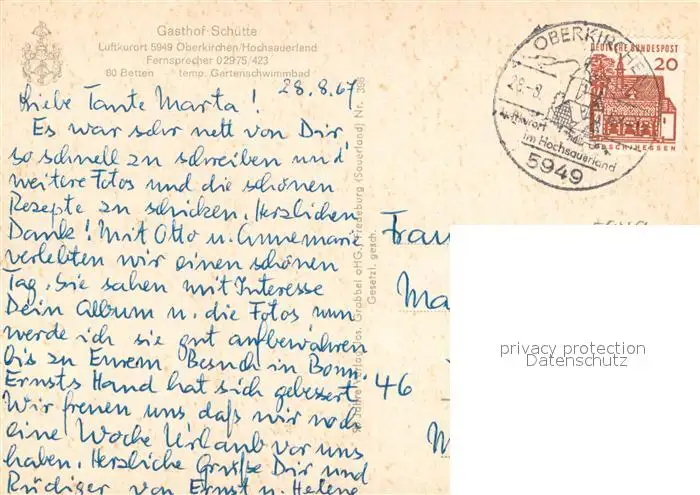 Gasthof Schütte
Luftkurort 5949 Oberkirchen/Hochsauerland
Fernsprecher 02975/423
60 Betten temp. Gartenschwimmbad
28.8.67
Liebe Tante Marta!
Es war sehr nett von Dir,
so schnell zu schreiben und
weitere Fotos und die schönen
Rezepte zu schicken. Herzlichen
Dank! Mit Otto u. Annemarie
verlebten wir einen schönen
Tag. Sie sahen mit Interesse
Dein Album u. die Fotos nun
werde ich sie gut aufbewahren
bis zu Eurem Besuch in Bonn.
Ernsts Hand hat sich gebessert.
Wir freuen uns daß wir noch
eine Woche Urlaub vor uns
haben. Herzliche Grüße Dir und
Rüdiger von Ernst u. Helene
Jahre Verlag Jos. Grobbel oHG., Fredeburg (Sauerland) Nr. 386
Gesetzl. gesch.
OBERKIRCHEN
28.-8.
Luftkurort
im Hochsauerland
5949
DEUTSCHE BUNDESPOST
20
LORSCH/HESSEN
Frau
Ma
46
privacy protection
Datenschutz